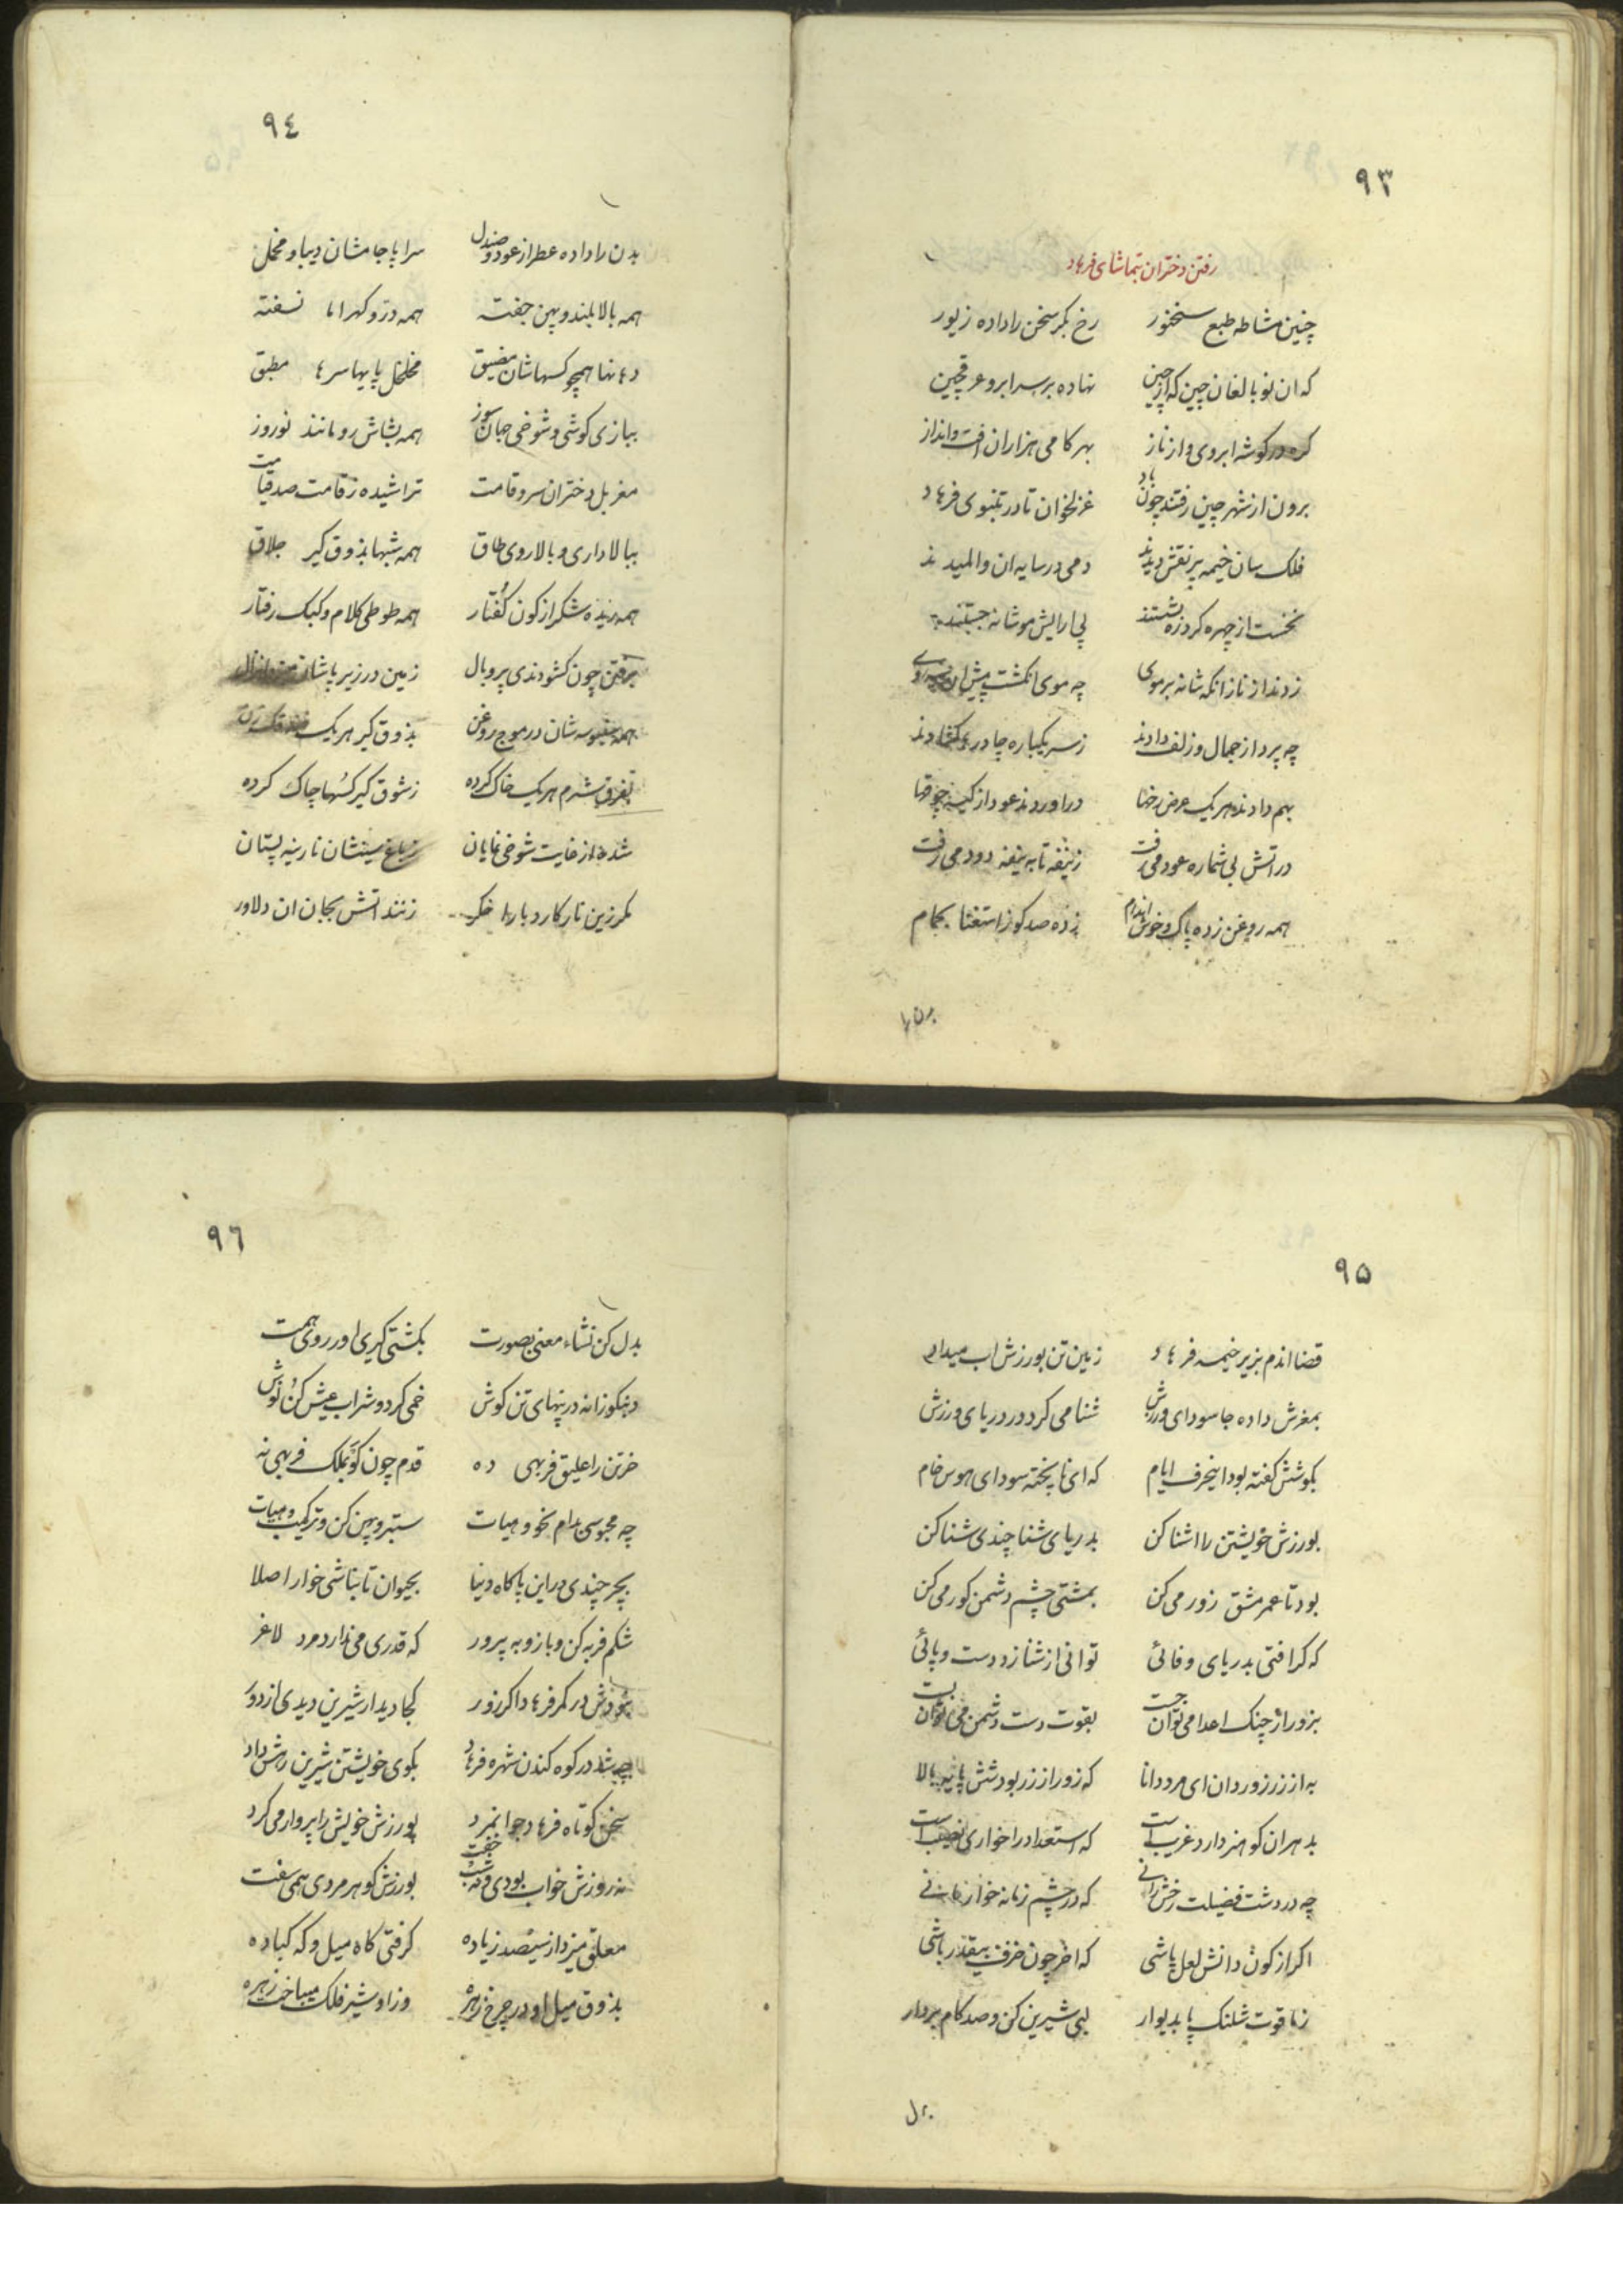 ٩٣
رفتن دختران بتماشای فرهاد
چنین مشاطه طبع سخنور رخ بکر سخن را داده زیور
که ان نو بالغان چین که از چین نهاده بر سر ابرو عرقچین
کره در کوشه ابروی و از ناز بهر کامی هزاران افت و انداز
برون از شهر چین رفتند چون باد غزلخوان تا در تنبوی فرهاد
فلک سان خیمه پر نقش دیدند دمی در سایه ان والمیدند
نخست از چهره کرد ره بشستند پی ارایش مو شانه جستند
زدند از ناز انکه شانه بر موی چه موی انکشت پیش
چه پرداز جمال و زلف دادند ز سر یکباره چادرها کشادند
بهم دادند هر یک عرض رخها در اوردند عود از کیسه چوقها
در اتش بی شماره عود می رفت ز نیفه تا به نیفه دود می رفت
همه روغن زده پاک و خوش اندام زده صد کوز استغنا بحمام
بدن را
٩٤
بدن را داده عطر از عود و صندل سراپا جامشان دیبا و مخمل
همه بالا بلند و پهن جفته همه در و کهر اما نسفته
دهنها همچو کسهاشان مضیق مخلخل پایها سرها مطبق
ببازی کوشی و شوخی جهان سوز همه بشاش رو مانند نوروز
مغربل دختران سرو قامت تراشیده ز قامت صد قیامت
ببالاداری و بالاروی طاق همه شبها بذوق کیر جلاق
همه رنده شکر از کون کفتار همه طوطی کلام و کبک رفتار
برفتن چون کشودندی پر و بال زمین در زیر پاشان
همه شان در موج روغن بذوق کیر هر یک
بفرق شرم هر یک خاک کرده ز شوق کیر کسها چاک کرده
شده از غایت شوخی نمایان ز باغ سینشان نارینه پستان
مکر زین نار کار دبارا زنند اتش بجان ان دلاور
٩٥
قضا اندم بزیر خیمه فرهاد زمین تن بورزش اب میداد
بمغزش داده جا سودای ورزش شنا می کرد در دریای ورزش
بکوشش کفته بود اینحرف ایام که ای ناپخته سودای هوس خام
بورزش خویشتن را اشنا کن بدریای شنا چندی شنا کن
بود تا عمر مشق زور می کن بمشتی چشم دشمن کور می کن
که کر افتی بدریای وفائی توانی از شنا زد دست و پائی
بزور از چنک اعدا می توان جست بقوت دست دشمن می توان بست
به از زر زور دان ای مرد دانا که زور از زر بود شش پایه بالا
بد هران کو هنر دارد غریب است که استعداد را خواری نصیب است
چه در دشت فضیلت رخش رانی که در چشم زمانه خوار مانی
اکر از کون دانش لعل پاشی که اخر چون خزف بیقدر باشی
ز نا قوت شلنک پا بدیوار لبی شیرین کن و صد کام بردار
بدل
٩٦
بدل کن نشاء معنی بصورت بکشتی کیری اور روی همت
دنبکوزانه در پنهای تن کوش خمی کرد و شراب عیش کن نوش
خرتن را علیق فربهی ده قدم چون کو بملک فربهی نه
چه محبوسی بدام نحو و هیات ستبر و پهن کن و ترکیب و هیات
بچر چندی در این پا کاه دنیا بحیوان تا نباشی خوار اصلا
شکم فربه کن و بازو به پرور که قدری می ندارد مرد لاغر
نبودش در کمر فرهاد اکر زور کجا دیدار شیرین دیدی از دور
چه شد در کوه کندن شهره فرهاد بکوی خویشتن شیرین رهش داد
سخن کوتاه فرهاد جوانمرد بورزش خویش را پروار می کرد
نه روزش خواب بودی و نه شب خفت بورزش کوهر مردی همی سفت
معلق میزد از سیصد زیاده کرفتی کاه میل و که کباده
بذوق میل او در چرخ زهره وز او شیر فلک میباخت زهره